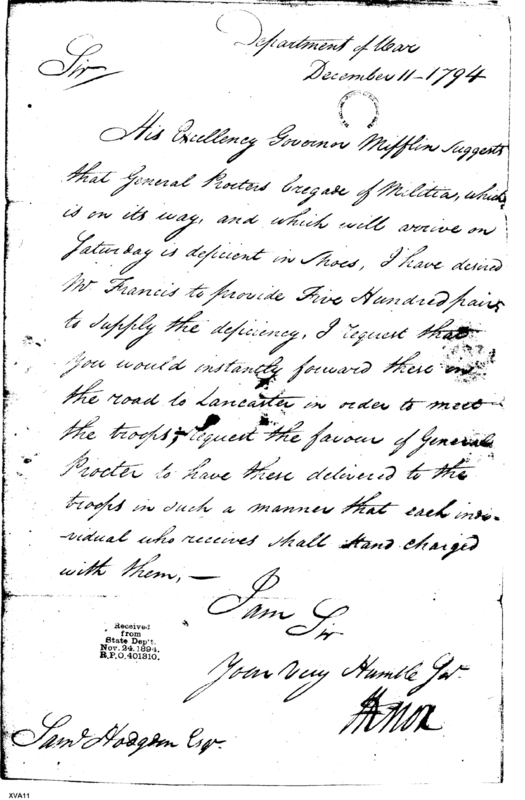 Department of War
December 11 - 1794
Sir
His Excellency Governor Mifflin suggests
that General Procters Bregade of Militia, which
is on its way, and which will arrive on
Saturday is deficient in Shoes, I have desired
Mr Francis to provide Five Hundred pair,
to supply the deficiency, I request that
you would instantly forward these on
the road to Lancaster in order to meet
the troops, & request the favour of General
Procter to have these delivered to the
troops in such a manner that each indi-
vidual who receives shall stand charged
with them, —
I am
Sir
Your Very Humble Ser.
HKnox
Received
from
State Dep't.
Nov. 24. 1894.
R.P.O. 401310.
Saml Hodgdon Esqr.
XVA11